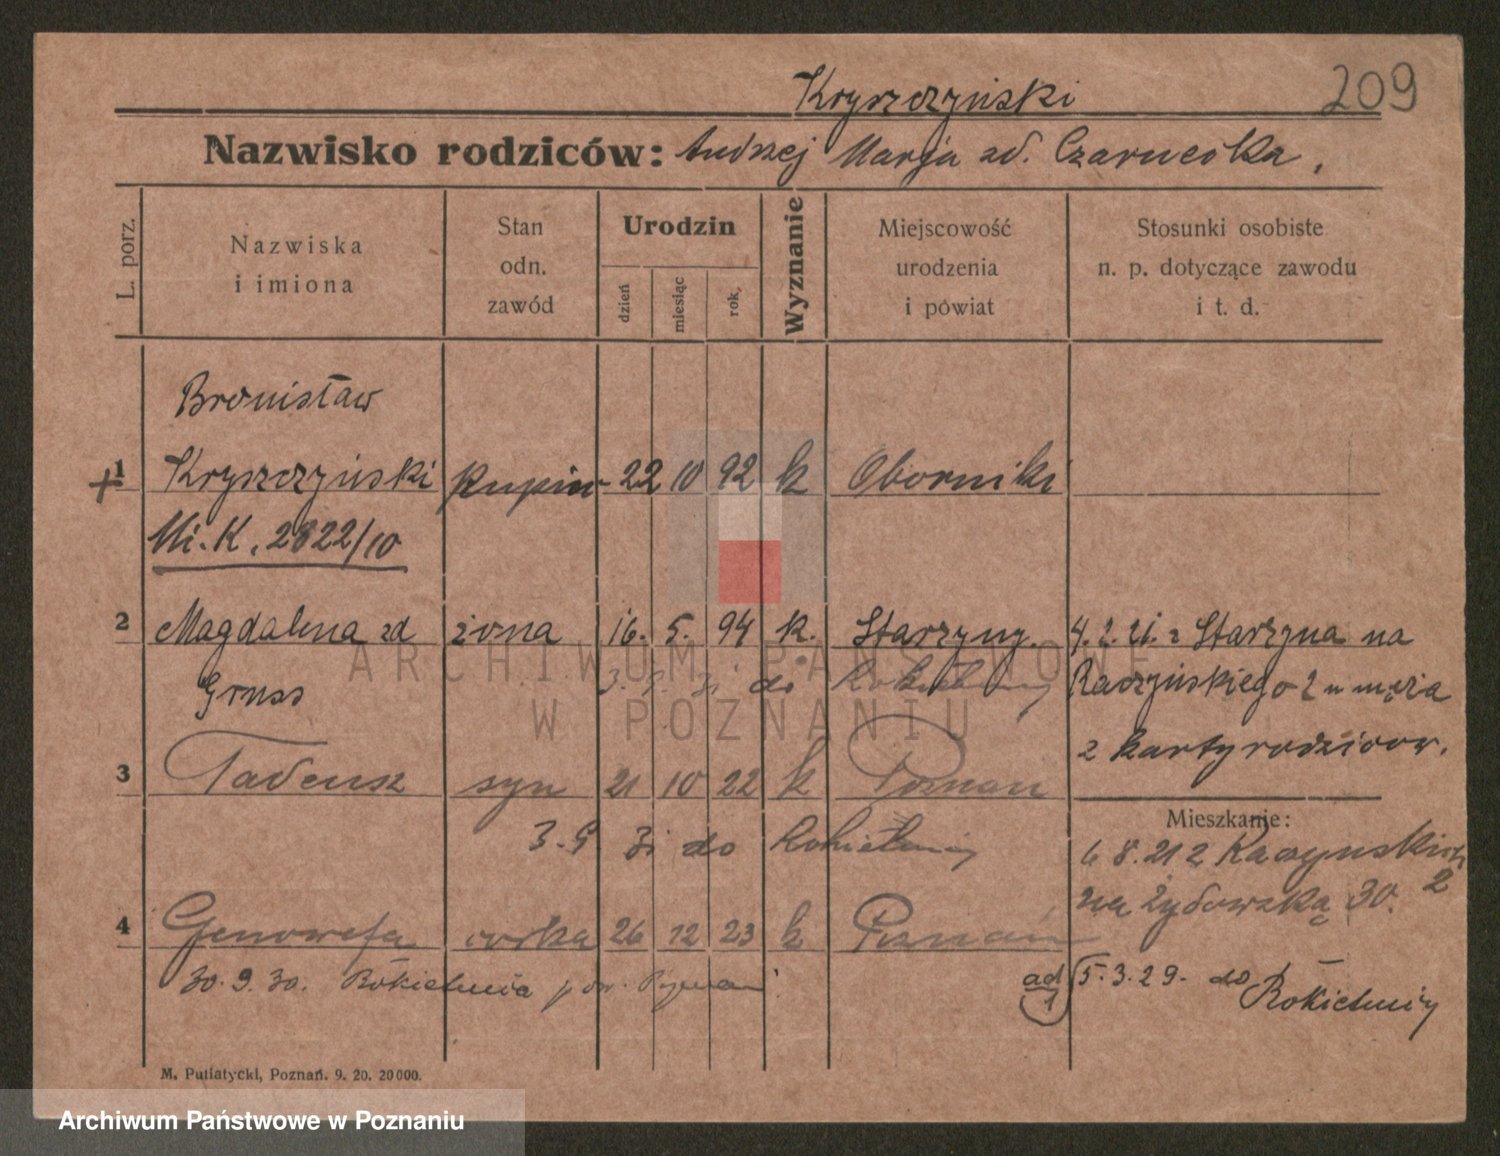 Kryszczyński 209
Nazwisko rodziców: Andrzej Marja zd. Czarnecka.
L. porz.
Nazwiska
i imiona
Stan
odn.
zawód
Urodzin
dzień
miesiąc
rok,
Wyznanie
Miejscowość
urodzenia
i powiat
Stosunki osobiste
n. p. dotyczące zawodu
i t. d.
Bronisław
+ 1 Kryszczyński kupiec 22 10 92 k Oborniki
Mi. K. 2822/10
2 Magdalena zd żona 16. 5. 94 k. Starzyny. 4.2.21. z Starzyna na
Gruss do Rokietnicy Raczyńskiego 2 u męża
z karty rodziców.
3 Tadeusz syn 21 10 22 k Poznań
Mieszkanie:
3.9 31 do Rokietnicy 6 8. 21 z Raczyńskich
na Żydowską 30. 2
4 Genowefa córka 26 12 23 k Poznań
30. 9. 30. Rokietnica pow. Poznań ad 1 5. 3. 29. do
Rokietnicy
M. Putiatycki, Poznań. 9. 20. 20 000.
ARCHIWUM PAŃSTWOWE
W POZNANIU
Archiwum Państwowe w Poznaniu